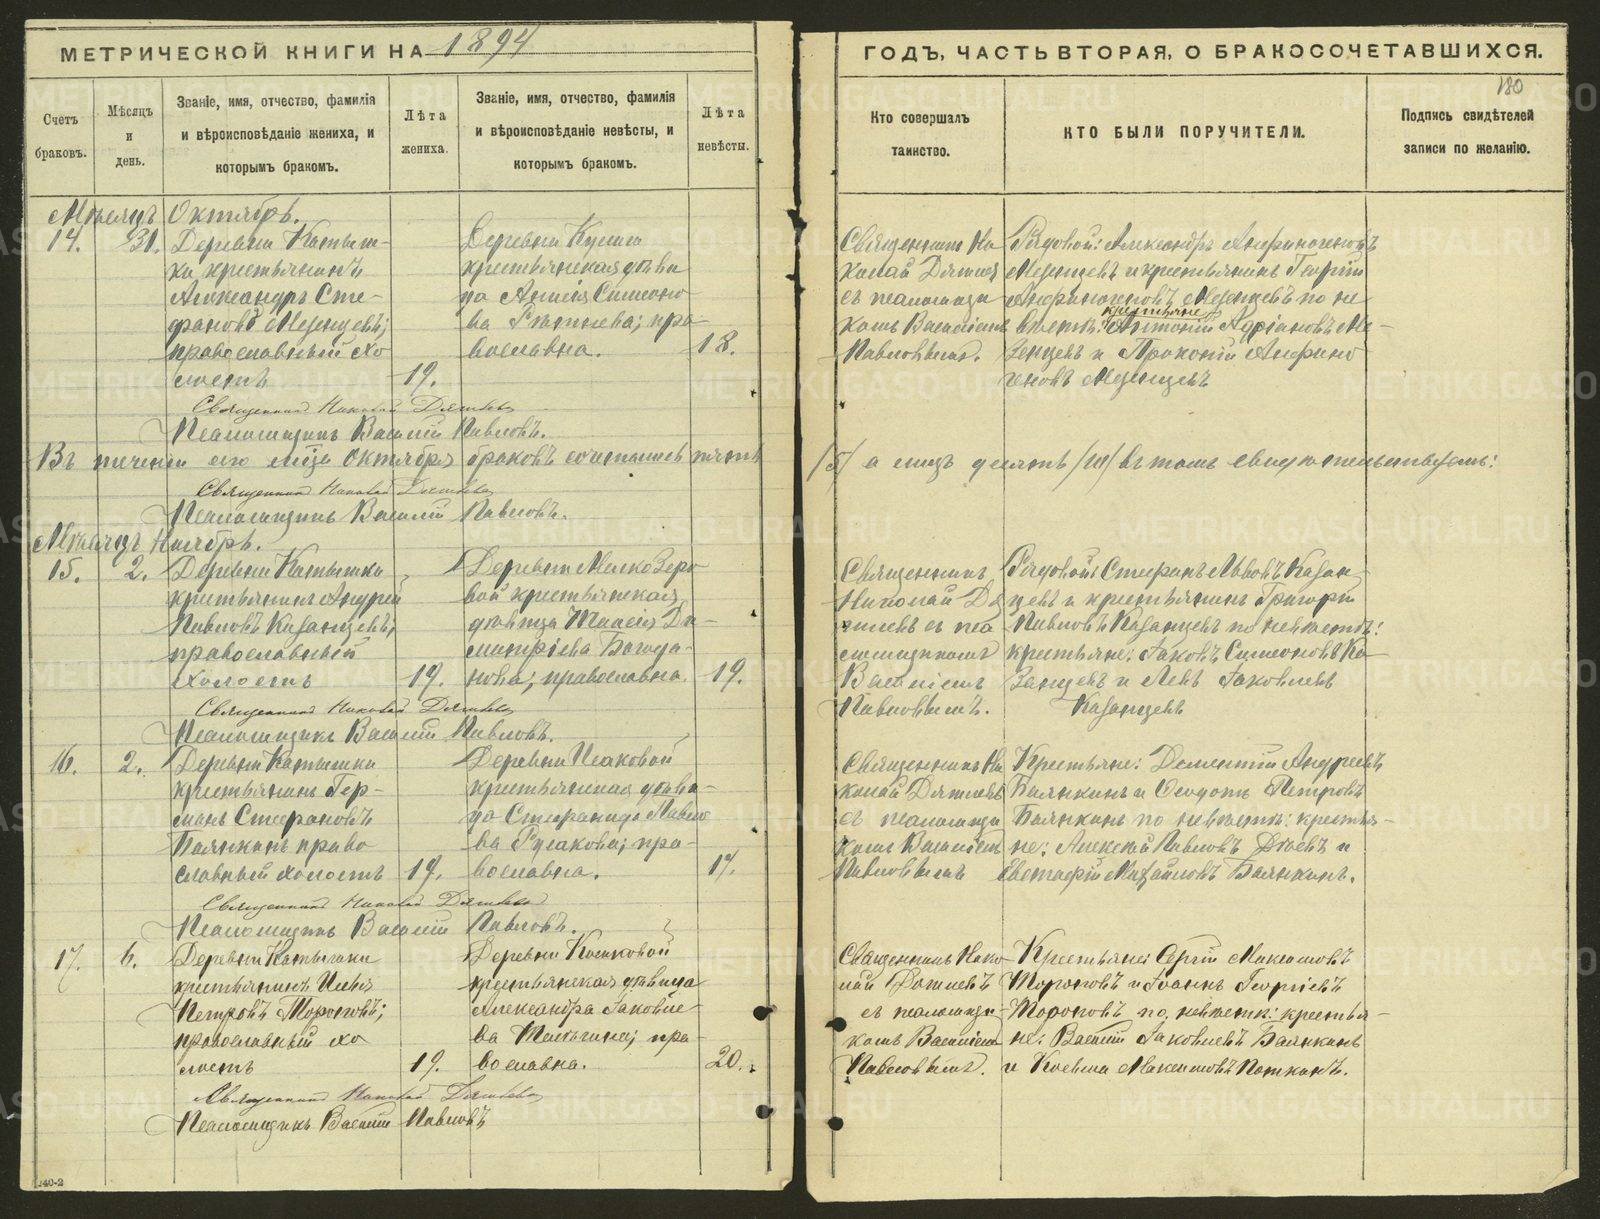 МЕТРИЧЕСКОЙ КНИГИ НА 1894
ГОДЪ, ЧАСТЬ ВТОРАЯ, О БРАКОСОЧЕТАВШИХСЯ.
180
Счетъ
браковъ.
Мѣсяцъ
и
день.
Званіе, имя, отчество, фамилія
и вѣроисповѣданіе жениха, и
которымъ бракомъ.
Лѣта
жениха.
Званіе, имя, отчество, фамилія
и вѣроисповѣданіе невѣсты, и
которымъ бракомъ.
Лѣта
невѣсты.
Кто совершалъ
таинство.
КТО БЫЛИ ПОРУЧИТЕЛИ.
Подпись свидѣтелей
записи по желанію.
Мѣсяцъ Октябрь.
14.
31.
Деревни Катыш-
ки крестьянинъ
Александръ Сте-
фановъ Мезенцевъ;
православный хо
лостъ
19.
Деревни
крестьянская дѣви
ца Анисія Симеоно
ва; пра-
вославна.
18.
Священникъ Ни
колай Дягилев
съ псаломщи
комъ Василіемъ
Павловымъ.
Рядовой: Александръ Анфиногеновъ
Мезенцевъ и крестьянинъ Георгій
Анфиногеновъ Мезенцевъ по не
крестьяне
вѣстѣ: Антоній Адріановъ Ме-
зенцевъ и Прокопій Анфино
геновъ Мезенцевъ
Священникъ Николай Дягилевъ
Псаломщикъ Василій Павловъ.
Въ теченіи его мѣс. Октября браковъ сочеталось пять
/5/ а лицъ десять /10/ въ томъ свидѣтельствуемъ:
Священникъ Николай Дягилевъ
Псаломщикъ Василій Павловъ.
Мѣсяцъ Ноябрь.
15.
2.
Деревни Катышки
крестьянинъ Андрей
Павловъ Казанцевъ;
православный
холостъ
19.
Деревни Мелкозеро
вой крестьянская
дѣвица Таисія Ди-
митріева Богда-
нова; православна.
19.
Священникъ
Николай Дя
гилевъ съ пса
ломщикомъ
Василіемъ
Павловымъ.
Рядовой: Стефанъ Львовъ Казан-
цевъ и крестьянинъ Григорій
Павловъ Казанцевъ по невѣстѣ:
крестьяне: Іаковъ Симеоновъ Ка-
занцевъ и Левъ Іаковлевъ
Казанцевъ
Священникъ Николай Дягилевъ
Псаломщикъ Василій Павловъ.
16.
2.
Деревни Катышки
крестьянинъ Гер-
манъ Стефановъ
Балякинъ право
славный холостъ
19.
Деревни Исаковой
крестьянская дѣви-
ца Стефанида Павло
ва Русакова; пра-
вославна.
17.
Священникъ Ни
колай Дягилевъ
съ псаломщи
комъ Василіемъ
Павловымъ
Крестьяне: Дометій Андреевъ
Балякинъ и Ѳеодотъ Петровъ
Балякинъ по невѣстѣ: крестья-
не: Алексѣй Павловъ и
Евстафій Михайловъ Балякинъ.
Священникъ Николай Дягилевъ
Псаломщикъ Василій Павловъ.
17.
6.
Деревни Катышки
крестьянинъ Илія
Петровъ Тороповъ;
православный хо
лостъ
19.
Деревни Кошковой
крестьянская дѣвица
Александра Іаковле-
ва; пра-
вославна.
20.
Священникъ Нико
лай Дягилевъ
съ псаломщи
комъ Василіем
Павловымъ.
Крестьяне: Сергій Максимовъ
Тороповъ и Іоаннъ Георгіевъ
Тороповъ по невѣстѣ: крестья-
не: Василій Іаковлевъ Балякинъ
и Косьма Максимовъ Паткинъ.
Священникъ Николай Дягилевъ
Псаломщикъ Василій Павловъ
140-2
METRIKI.GASO-URAL.RU